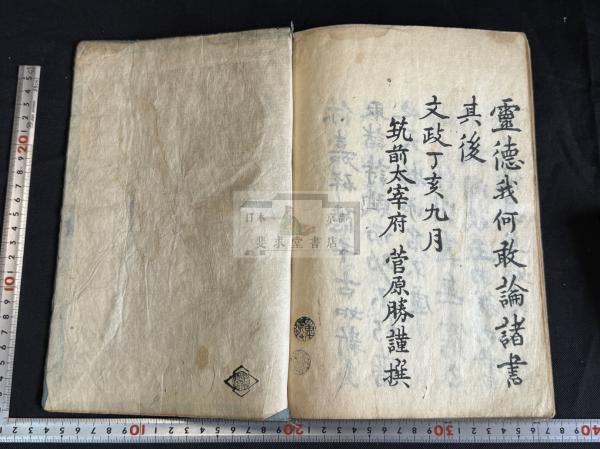 靈德我何敢論諸書
其後
文政丁亥九月
筑前太宰府 菅原勝謹撰
日本 京都
斐求堂書店